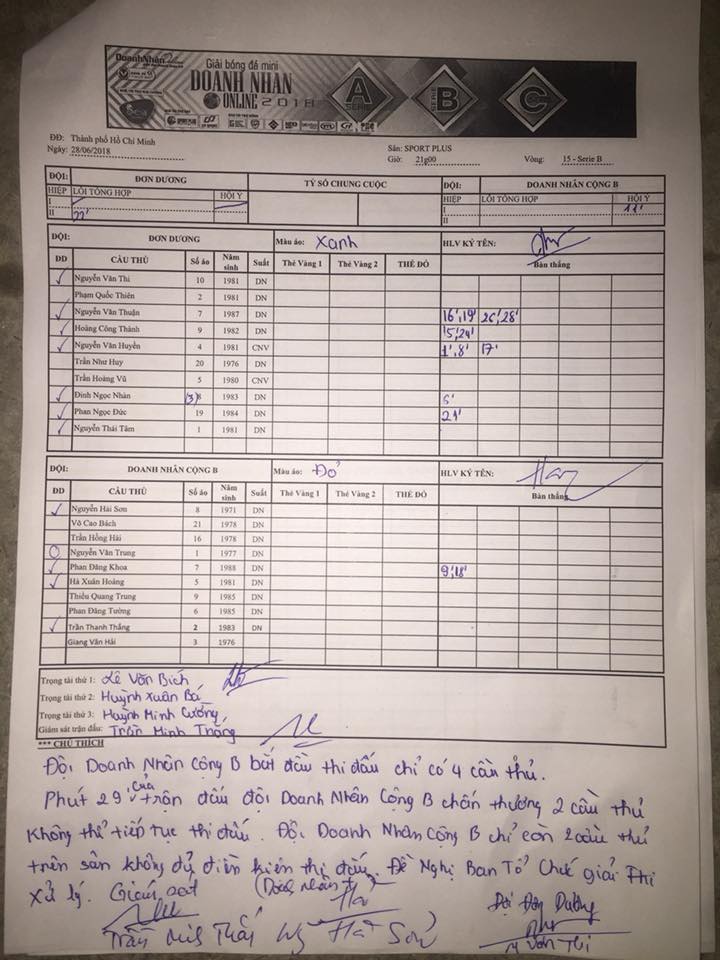 DoanhNhân
Giải bóng đá mini
DOANH NHÂN
ONLINE 2018
A
SERIE
B
SERIE
C
ĐĐ: Thành phố Hồ Chí Minh
Ngày: 28/06/2018
Sân: SPORT PLUS
Giờ: 21g00 Vòng: 15 - Serie B
ĐỘI: ĐƠN DƯƠNG TỶ SỐ CHUNG CUỘC ĐỘI: DOANH NHÂN CỘNG B
HIỆP LỖI TỔNG HỢP HỘI Ý HIỆP LỖI TỔNG HỢP HỘI Ý
I I 11'
II 22' II
ĐỘI: ĐƠN DƯƠNG Màu áo: Xanh HLV KÝ TÊN:
DD CẦU THỦ Số áo Năm sinh Suất Thẻ Vàng 1 Thẻ Vàng 2 THẺ ĐỎ Bàn thắng
Nguyễn Văn Thi 10 1981 DN
Phạm Quốc Thiên 2 1981 DN
Nguyễn Văn Thuận 7 1987 DN 16',19' 26',28'
Hoàng Công Thành 9 1982 DN 15',24'
Nguyễn Văn Huyền 4 1981 CNV 1',8' 17'
Trần Như Huy 20 1976 DN
Trần Hoàng Vũ 5 1980 CNV
Đinh Ngọc Nhàn (3)8 1983 DN
Phan Ngọc Đức 19 1984 DN 21'
Nguyễn Thái Tâm 1 1981 DN
ĐỘI: DOANH NHÂN CỘNG B Màu áo: Đỏ HLV KÝ TÊN:
DD CẦU THỦ Số áo Năm sinh Suất Thẻ Vàng 1 Thẻ Vàng 2 THẺ ĐỎ Bàn thắng
Nguyễn Hải Sơn 8 1971 DN
Võ Cao Bách 21 1978 DN
Trần Hồng Hải 16 1978 DN
Nguyễn Văn Trung 1 1977 DN
Phan Đăng Khoa 7 1988 DN 9',18'
Hà Xuân Hoàng 5 1981 DN
Thiều Quang Trung 9 1985 DN
Phan Đăng Tường 6 1985 DN
Trần Thanh Thắng 2 1983 DN
Giang Văn Hải 3 1976
Trọng tài thứ 1: Lê Văn Bích
Trọng tài thứ 2: Huỳnh Xuân Bá
Trọng tài thứ 3: Huỳnh Minh Cường
Giám sát trận đấu: Trần Minh Thắng
*** CHÚ THÍCH
Đội Doanh Nhân Cộng B bắt đầu thi đấu chỉ có 4 cầu thủ.
Phút 29 của trận đấu đội Doanh Nhân Cộng B chấn thương 2 cầu thủ
không thể tiếp tục thi đấu. Đội Doanh Nhân Cộng B chỉ còn 2 cầu thủ
trên sân không đủ điều kiện thi đấu. Đề Nghị Ban Tổ Chức giải
xử lý. Giám sát Đội Đơn Dương
Hải Sơn
Văn Thi